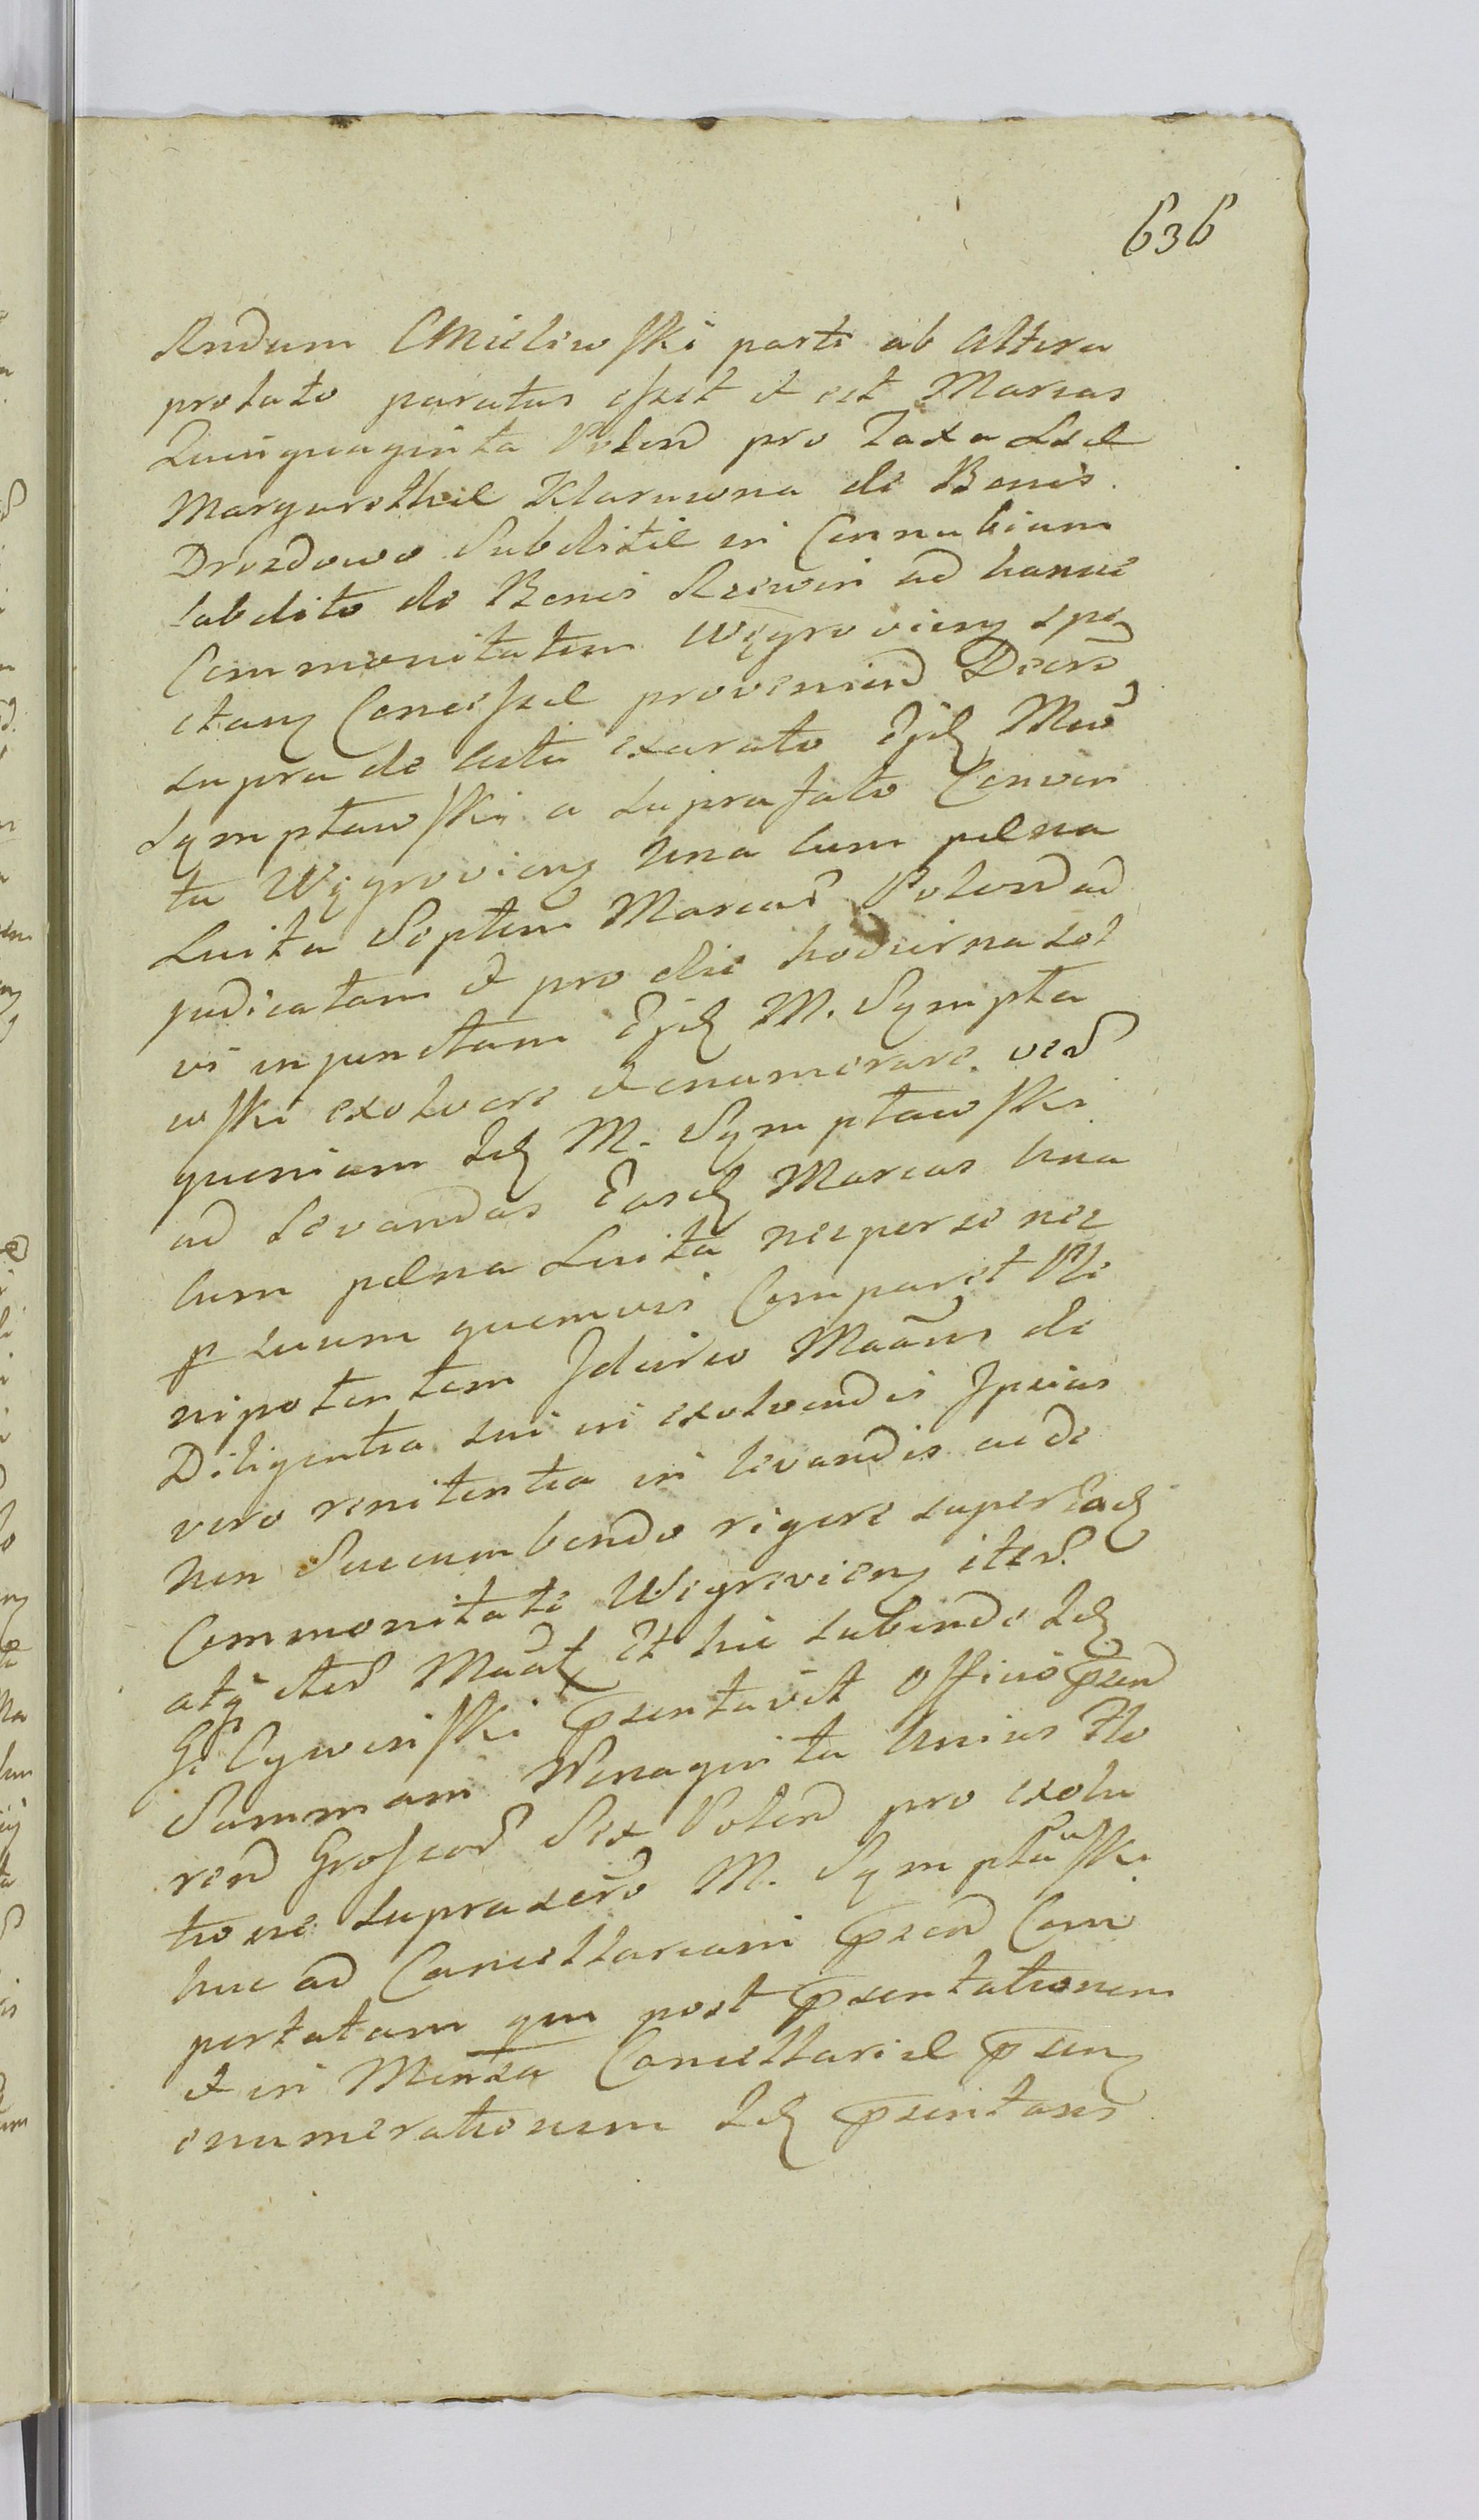 636
Rndum Chleliwski parti ab Altera
prolato paratus esset et est Marcas
Quinquaginta Polend pro Taxa Sae
Margarethae Klarowna de Bonis
Drozdowo Subditae in Connubium
Subdito de Bonis Rzewin ad hance
Commonitatem Węgrovieng spe
ctang Concessae proveniend Decre
supra de actu exarato Ejd Mco
Sympławski a suprafato Conven
tu Węgrovieng una cum pena
Luita Septem Marcar Polend ad
judicatam et pro die hodierna sol
vi injunctam Ejd M. Sympła
wski exolvere et enumerare ver
quoniam Id M. Sympławski
ad levandas Easd Marcas una
cum pena Luita nec per se nec
p suum quemvis Comparet Ple
nipotentem Idcirco Maans de
Diligentia sui in exolvendis Ipsius
vero renitentia in levandis ac de
non Succumbendo rigore super Ead
Commonitate Węgrovieng iter
atq iter Maat Et hic subinde Id
G. Cywinski psentavit Officio psen
Summam Nonaginta Unius Flo
ren Grossor Sex Polend pro exolu
tione suprascr M. Sympławski
huc ad Cancellariam psen Com
portatam qua post psentationem
et in Mensa Cancellariae pseng
enumerationem Id psentans